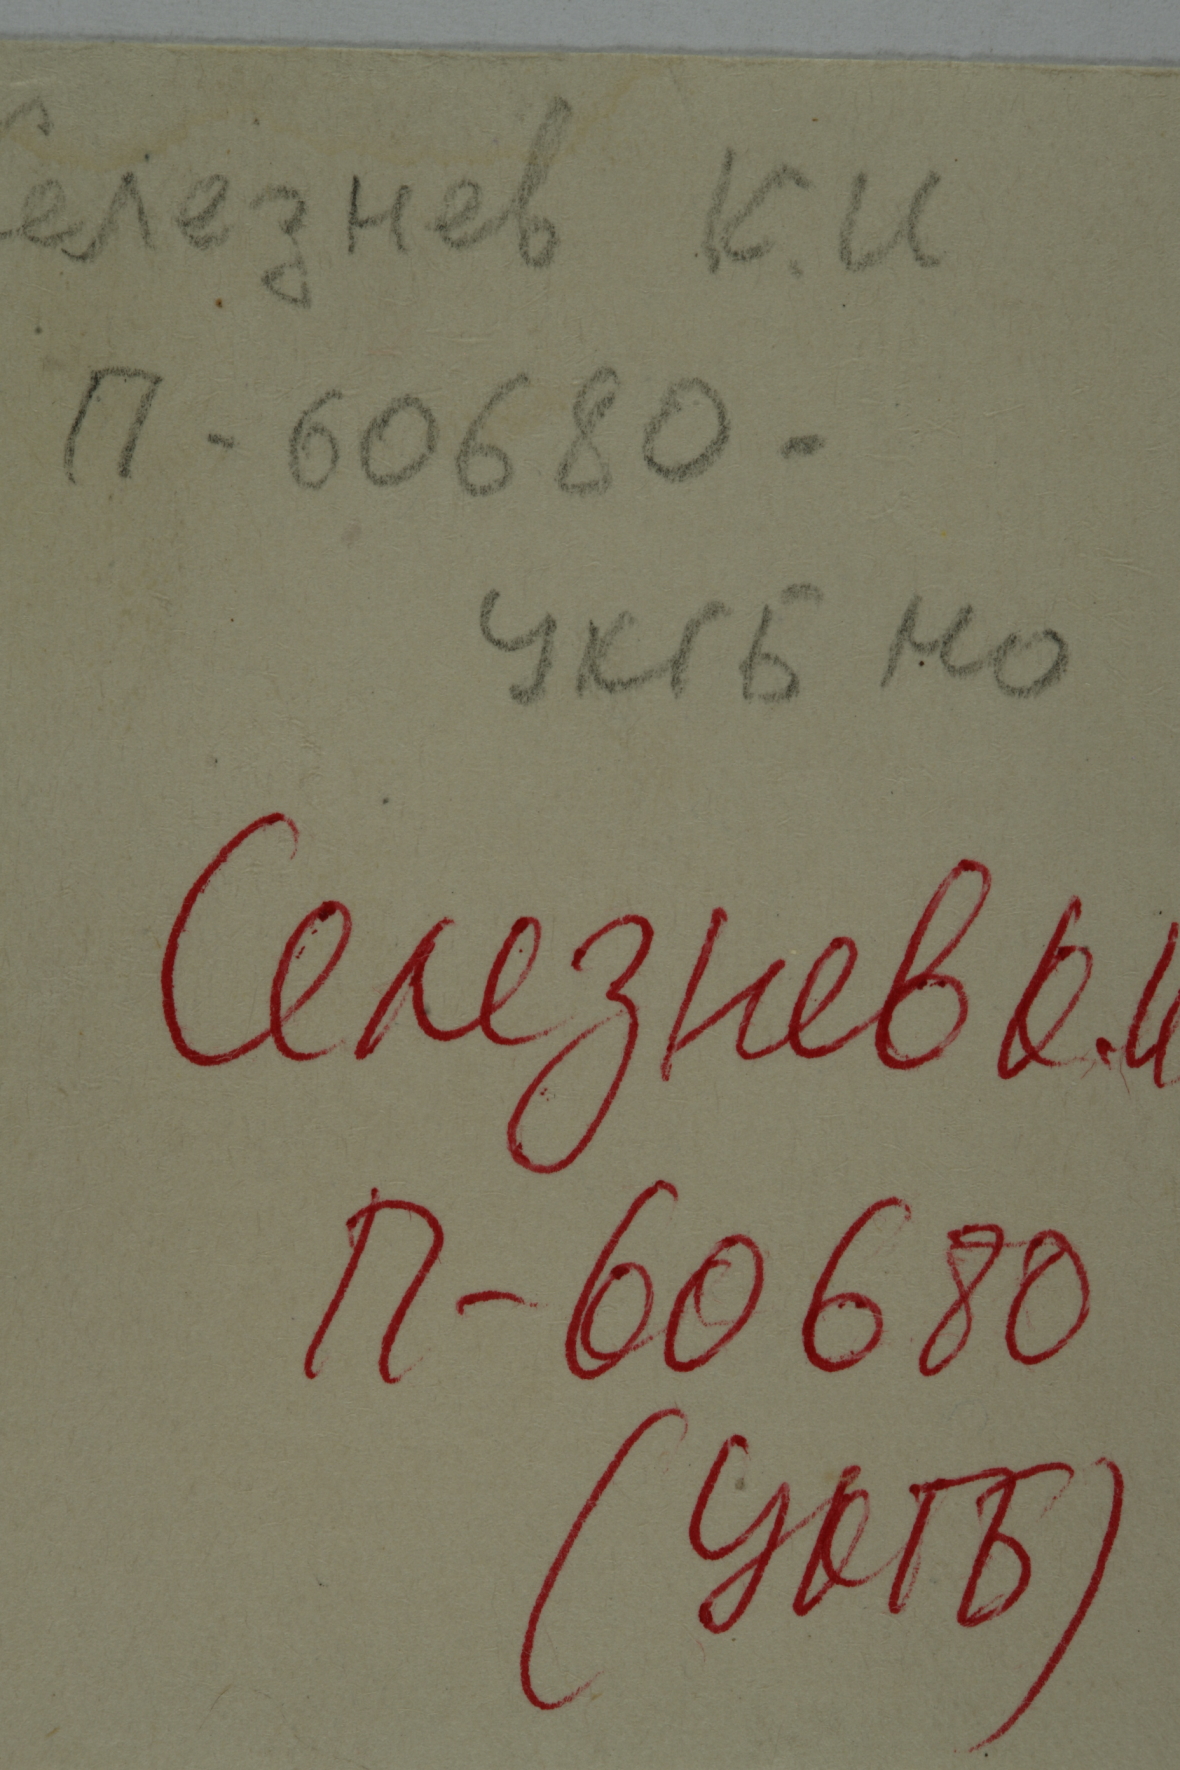 Селезнев К.И
П-60680-
УКГБ МО
Селезнев К.И
П-60680
(УКГБ)